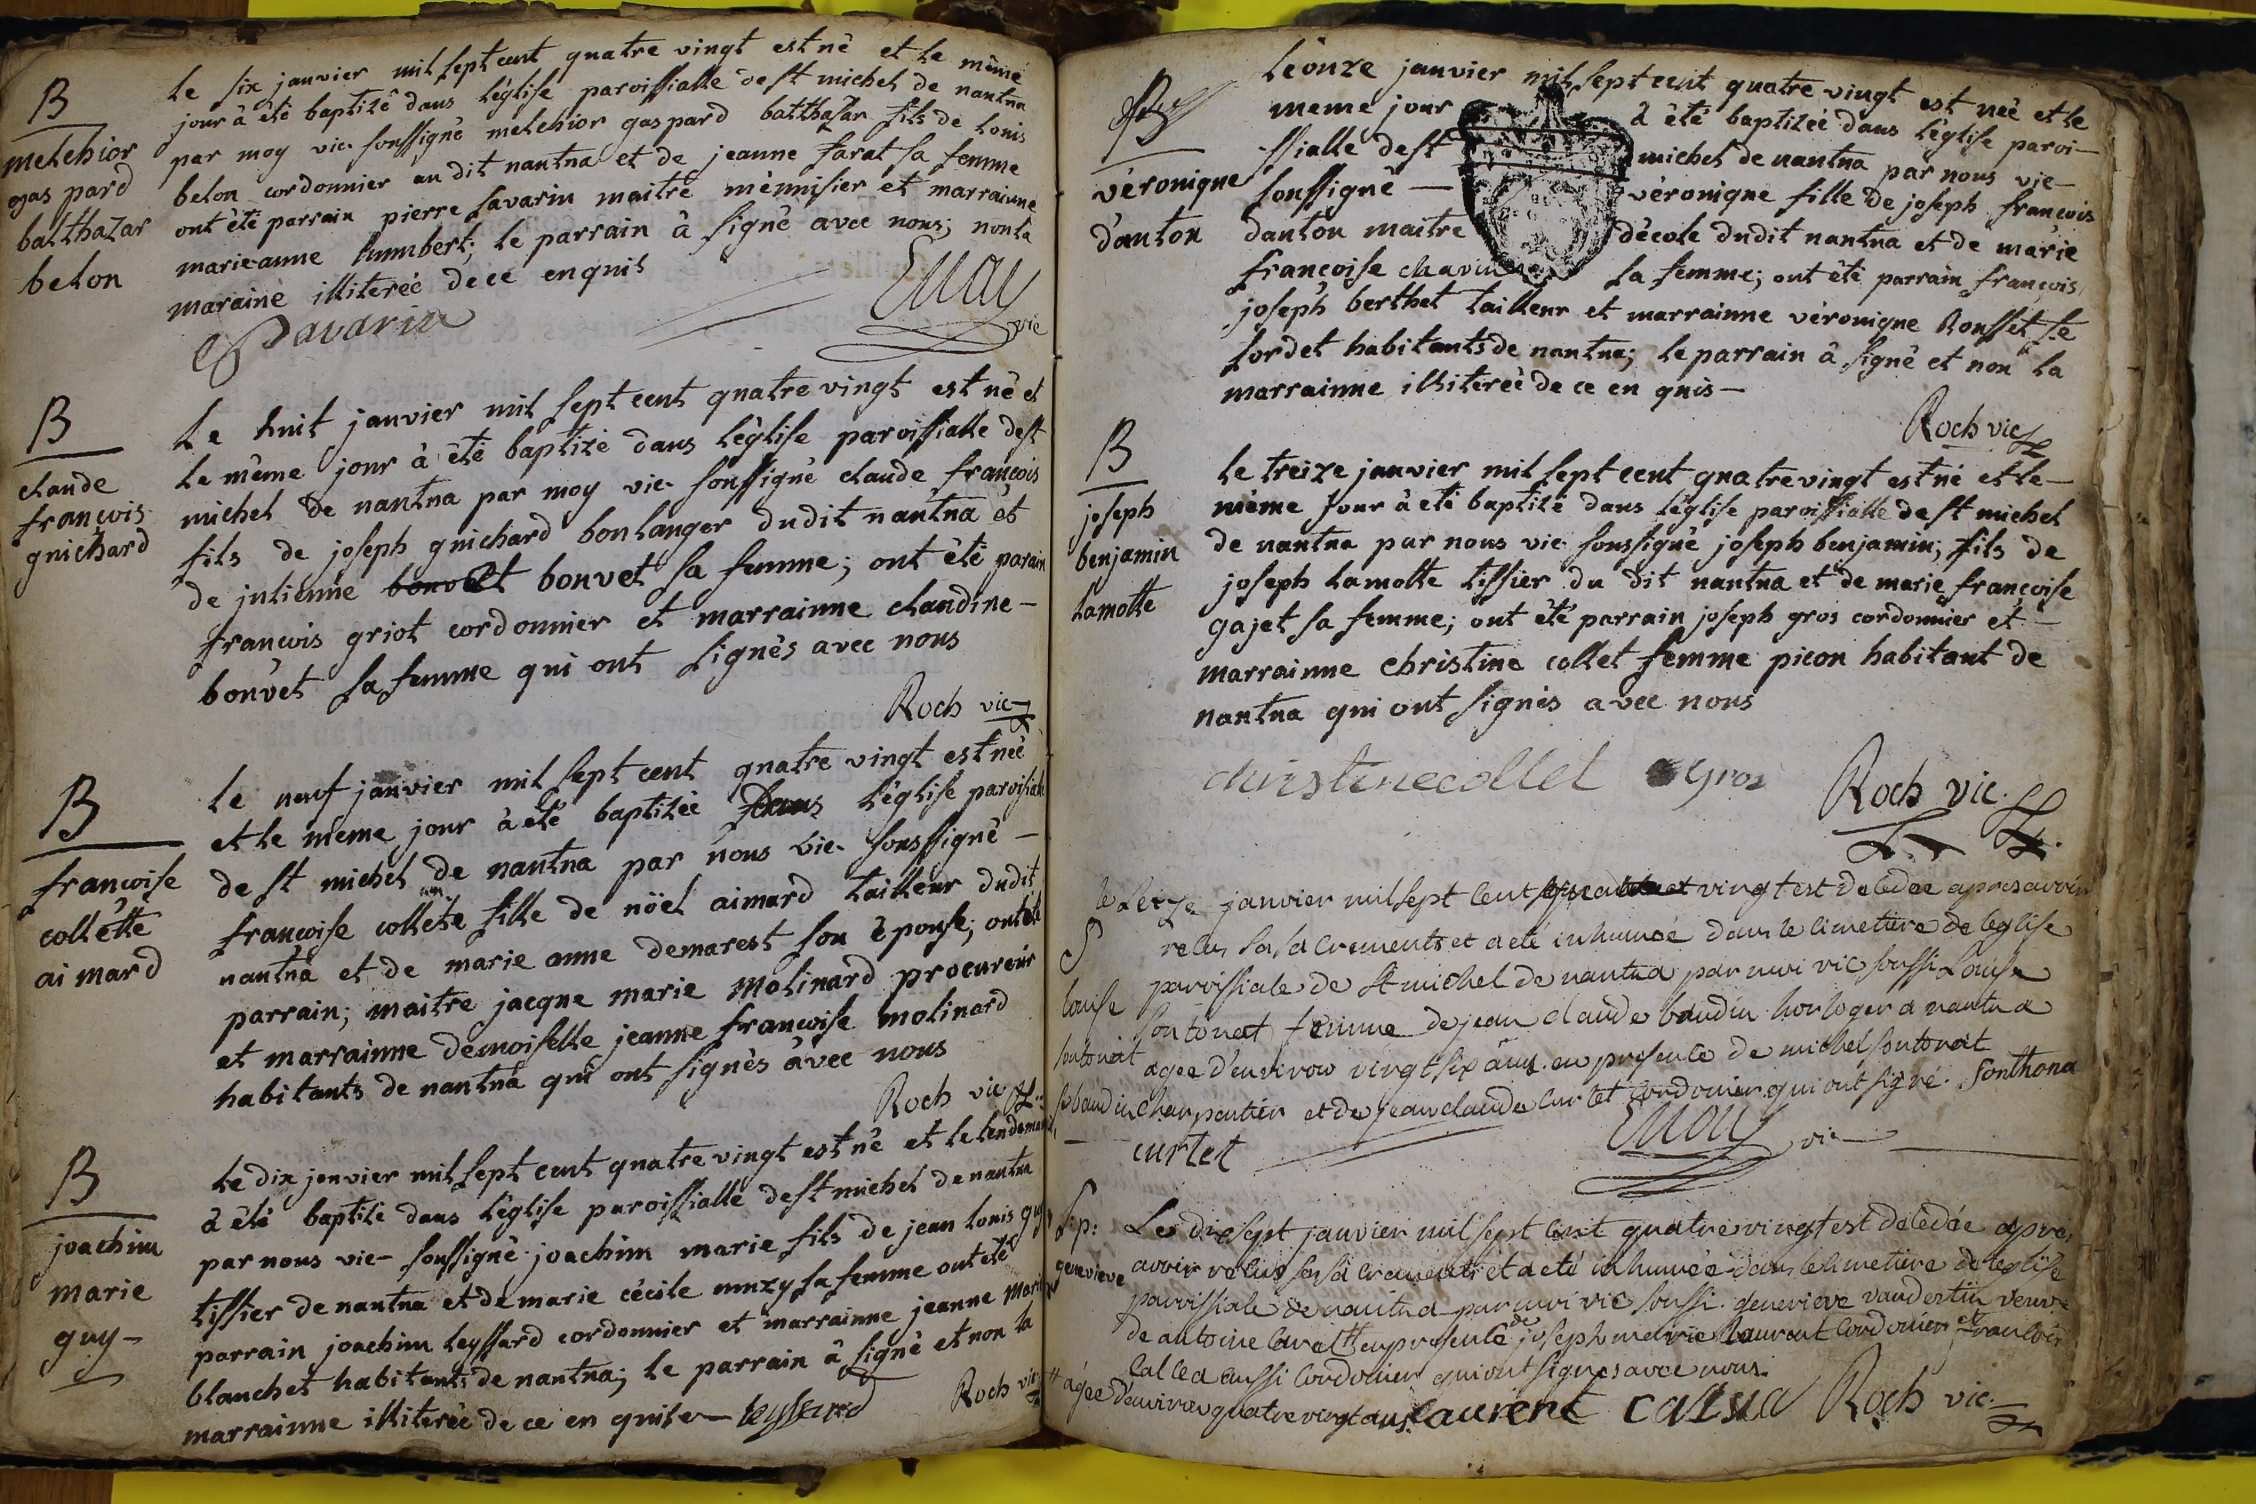 B
melchior
gaspard
balthazar
belon
le six janvier mil sept cent quatre vingt est nê et le même
jour â êtê baptizê dans l'êglise paroissialle de st michel de nantua
par moy vic. soussignê melchior gaspard balthazar fils de louis
belon cordonnier au dit nantua et de jeanne farat sa femme
ont êtê parrain pierre savarin maitre mênuisier et marrainne
marieanne humbert; le parrain â signê avec nous; non la
maraine illiterêe de ce enquis
Savarin
vic
B
claude
françois
guichard
Le huit janvier mil sept cent quatre vingt est nê et
le même jour â êtê baptizê dans l'êglise paroissialle de st
michel de nantua par moy vic. soussignê claude françois
fils de joseph guichard boulanger dudit nantua et
de julienne bonvet bonvet sa femme; ont êtê parain
francois griot cordonnier et marrainne claudine -
bonvet sa femme qui ont signês avec nous
Roch vic
B
francoise
collette
aimard
le neuf janvier mil sept cent quatre vingt est nêe
et le même jour â êtê baptizêe dans l'êglise paroissialle
de st michel de nantua par nous vic. soussignê -
francoise collete fille de nöel aimard tailleur dudit
nantua et de marie anne demarest son êpouse; ont êtê
parrain; maitre jacque marie molinard procureur
et marrainne demoiselle jeanne francoise molinard
habitants de nantua qui ont signês avec nous
Roch vic
B
joachim
marie
guy -
le dix janvier mil sept cent quatre vingt est nê et le lendemain
â êtê baptizê dans l'êglise paroissialle de st michel de nantua
par nous vic - soussignê joachim marie fils de jean louis guy
tissier de nantua et de marie cêcile muzy sa femme ont êtê
parrain joachim leyssard cordonnier et marrainne jeanne marie
blanchet habitants de nantua; le parrain â signê et non la
marrainne illiterêe de ce en quise - leyssard
Roch vic
B
vêronique
danton
le onze janvier mil sept cent quatre vingt est nêe et le
meme jour â êtê baptizêe dans l'êglise paroi-
ssialle de st michel de nantua par nous vic -
soussignê - vêronique fille de joseph francois
danton maitre d'êcole dudit nantua et de marie
francoise chavin sa femme; ont êtê parrain françois
joseph berthet tailleur et marrainne vêronique Rousset fe
sordet habitants de nantua; le parrain â signê et non la
marrainne illiterêe de ce en quis -
Roch vic
B
joseph
benjamin
lamotte
le treize janvier mil sept cent quatre vingt est né et le -
même jour â etê baptizê dans l'êglise paroissialle de st michel
de nantua par nous vic. soussignê joseph benjamin; fils de
joseph lamotte tissier du dit nantua et de marie françoise
gajet sa femme; ont êtê parrain joseph gros cordonnier et -
marrainne christine collet femme picon habitant de
nantua qui ont signês avec nous
christine collet gros Roch vic.
S
louise
sontonat
fe baudin
le seize janvier mil sept cent quatre vingt est decedee apres avoir
recus ses sacrements et a eté inhumée dans le cimettere de leglise
paroissiale de st michel de nantua par moi vic soussi. Louise
sontonat femme de jean claude baudin horloger a nantua
agee d'environ vingt six ans. en presence de michel sontonat
charpentier et de jean claude curtet cordonier qui ont signé. Sonthona
curtet vic
Sep:
genevieve
Le dix sept janvier mil sept cent quatre vingt est decedée apres
avoir recus ses sacrements et a eté inhumée dans le cimetiere de leglise
paroissiale de nantua par moi vic soussi. genevieve vaudertin veuve
de antoine carat # en presence de joseph marie laurent cordonier et françois
called aussi cordonier qui ont signes avec nous.
# âgee d'environ quatre vingt ans. laurent Roch vic.